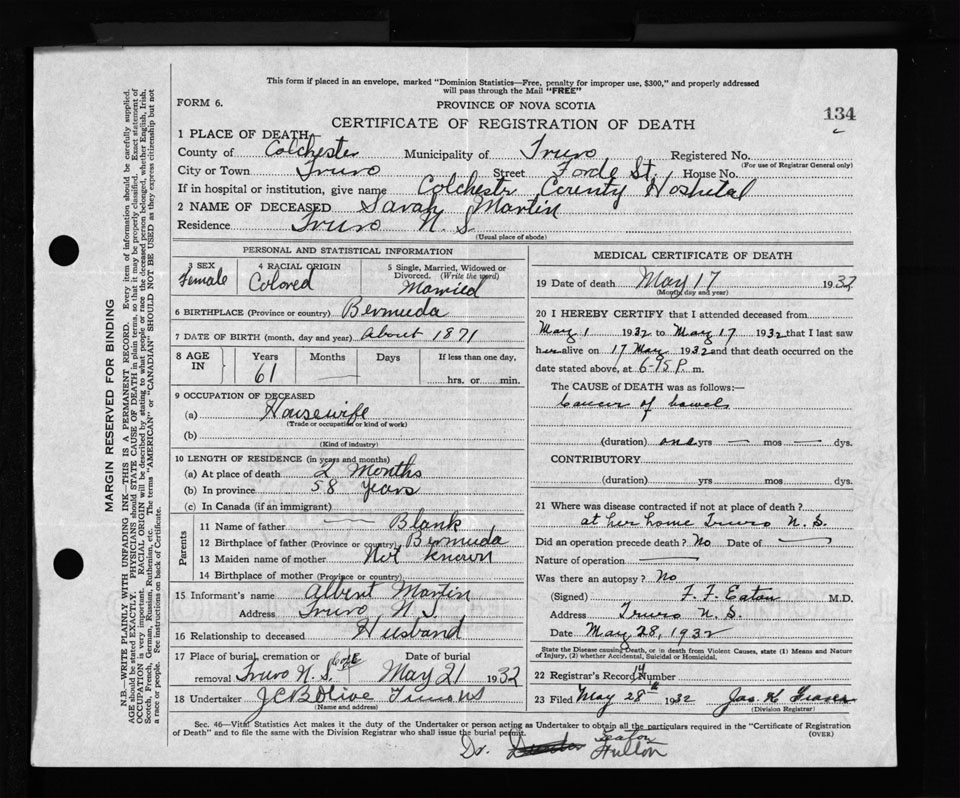 This form if placed in an envelope, marked "Dominion Statistics—Free, penalty for improper use, $300," and properly addressed
will pass through the Mail "FREE"
FORM 6.
PROVINCE OF NOVA SCOTIA
134
CERTIFICATE OF REGISTRATION OF DEATH
1 PLACE OF DEATH
County of Colchester Municipality of Truro Registered No.
(For use of Registrar General only)
City or Town Truro Street Forde St. House No.
If in hospital or institution, give name Colchestr County Hospital
2 NAME OF DECEASED Sarah Martin
Residence Truro N. S.
(Usual place of abode)
PERSONAL AND STATISTICAL INFORMATION
3 SEX 4 RACIAL ORIGIN 5 Single, Married, Widowed or
Divorced. (Write the word)
Female Colored Married
6 BIRTHPLACE (Province or country) Bermuda
7 DATE OF BIRTH (month, day and year) About 1871
8 AGE IN Years Months Days If less than one day,
61 — hrs. or min.
9 OCCUPATION OF DECEASED
(a) Housewife
(Trade or occupation or kind of work)
(b)
(Kind of industry)
10 LENGTH OF RESIDENCE (in years and months)
(a) At place of death 2 Months
(b) In province 58 years
(c) In Canada (if an immigrant)
Parents
11 Name of father — Blank
12 Birthplace of father (Province or country) Bermuda
13 Maiden name of mother Not known
14 Birthplace of mother (Province or country)
15 Informant's name Albert Martin
Address Truro N. S.
16 Relationship to deceased Husband
17 Place of burial, cremation or removal Truro N. S. Date of burial May 21 1932
18 Undertaker J C B Olive Truro N S
(Name and address)
MEDICAL CERTIFICATE OF DEATH
19 Date of death May 17 1932
(Month, day and year)
20 I HEREBY CERTIFY that I attended deceased from
May 1 1932 to May 17 1932 that I last saw
her alive on 17 May 1932 and that death occurred on the
date stated above, at 6-15 P. m.
The CAUSE of DEATH was as follows:—
Cancer of bowels
(duration) one yrs — mos — dys.
CONTRIBUTORY
(duration) yrs mos dys.
21 Where was disease contracted if not at place of death?
at her home Truro N. S.
Did an operation precede death? No Date of —
Nature of operation —
Was there an autopsy? No
(Signed) F. F. Eaton M.D.
Address Truro N. S.
Date May 28, 1932
State the Disease causing Death, or in death from Violent Causes, state (1) Means and Nature
of Injury, (2) whether Accidental, Suicidal or Homicidal.
22 Registrar's Record Number 14
23 Filed May 28th 1932 Jas. H Fraser
(Division Registrar)
Sec. 46—Vital Statistics Act makes it the duty of the Undertaker or person acting as Undertaker to obtain all the particulars required in the "Certificate of Registration
of Death" and to file the same with the Division Registrar who shall issue the burial permit.
(OVER)
Dr. Seaton Fulton
MARGIN RESERVED FOR BINDING
N.B.—WRITE PLAINLY WITH UNFADING INK—THIS IS A PERMANENT RECORD. Every item of information should be carefully supplied.
AGE should be stated EXACTLY. PHYSICIANS should STATE CAUSE OF DEATH in plain terms, so that it may be properly classified. Exact statement of
OCCUPATION is very important. RACIAL ORIGIN will be described by stating to what people or race the deceased person belonged, whether English, Irish,
Scotch, French, German, Russian, Ruthenian, etc. The terms "AMERICAN" or "CANADIAN" SHOULD NOT BE USED as they express citizenship but not
a race or people. See instructions on back of Certificate.